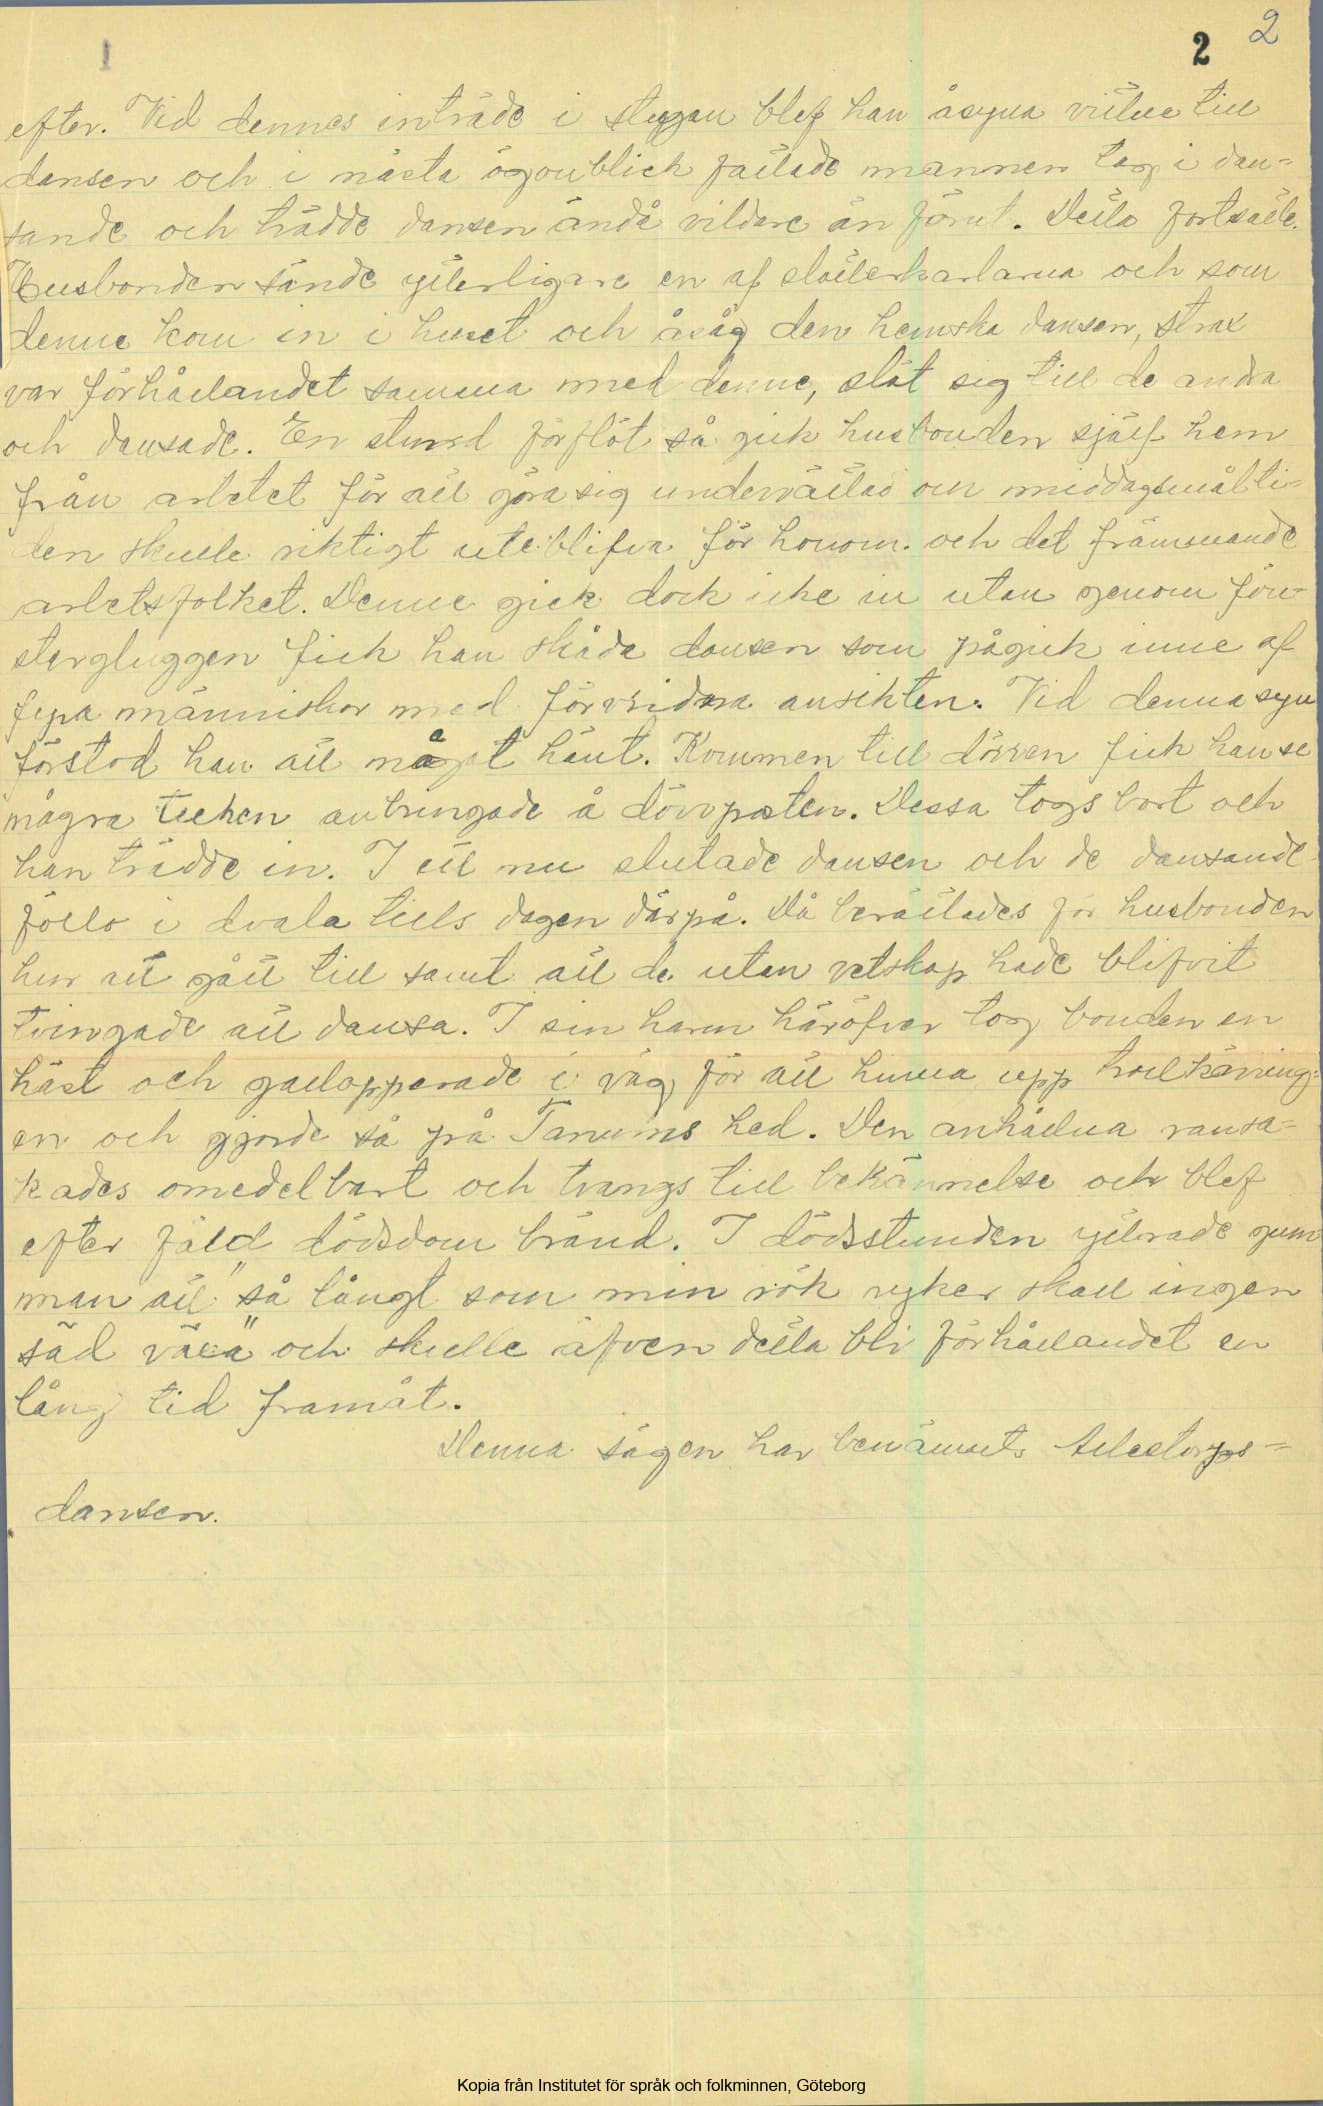 1
2 2
efter. Vid dennes inträde i stugan blef han åsyna vittne till
dansen och i nästa ögonblick fattade mannen tag i dan-
sande och trädde dansen ändå vildare än förut. Detta fortsatte.
Husbonden sände ytterligare en af slåtterkarlarna och som
denne kom in i huset och åsåg den hemska dansen, strax
var förhållandet samma med denne, slöt sig till de andra
och dansade. En stund förflöt så gick husbonden själf hem
från arbetet för att göra sig underrättad om middagsmålti-
den skulle riktigt utebli­fva för honom och det främmande
arbetsfolket. Denne gick dock icke in utan genom fön-
stergluggen fick han skåda dansen som pågick inne af
fyra människor med förvridna ansikten. Vid denna syn
förstod han att något hänt. Kommen till dörren fick han se
några tecken anbringade å dörrposten. Dessa togs bort och
han trädde in. I ett nu slutade dansen och de dansande
föllo i dvala tills dagen därpå. Då berättades för husbonden
hur att gått till samt att de utan vetskap hade blifvit
tvingade att dansa. I sin harm häröfver tog bonden en
häst och gallopperade i väg för att hinna upp trollkäring-
en och gjorde så på Tanums hed. Den anhållna ransa-
kades omedelbart och tvangs till bekännelse och blef
efter fälld dödsdom bränd. I dödsstunden yttrade gum
man att "så långt som min rök ryker skall ingen
säd växa" och skulle äfven detta bli förhållandet en
lång tid framåt.
Denna sägen har benämnts -
dansen.
Kopia från Institutet för språk och folkminnen, Göteborg